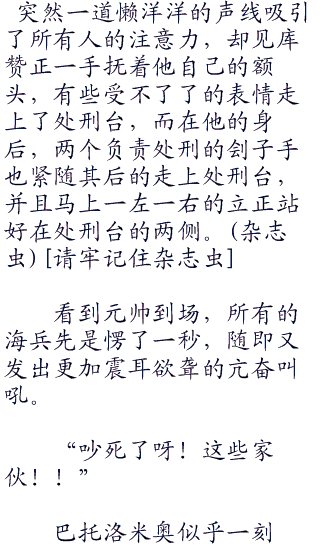 突然一道懒洋洋的声线吸引
了所有人的注意力，却见库
赞正一手抚着他自己的额
头，有些受不了了的表情走
上了处刑台，而在他的身
后，两个负责处刑的刽子手
也紧随其后的走上处刑台，
并且马上一左一右的立正站
好在处刑台的两侧。(杂志
虫)[请牢记住杂志虫]
看到元帅到场，所有的
海兵先是愣了一秒，随即又
发出更加震耳欲聋的亢奋叫
吼。
“吵死了呀！这些家
伙！！”
巴托洛米奥似乎一刻